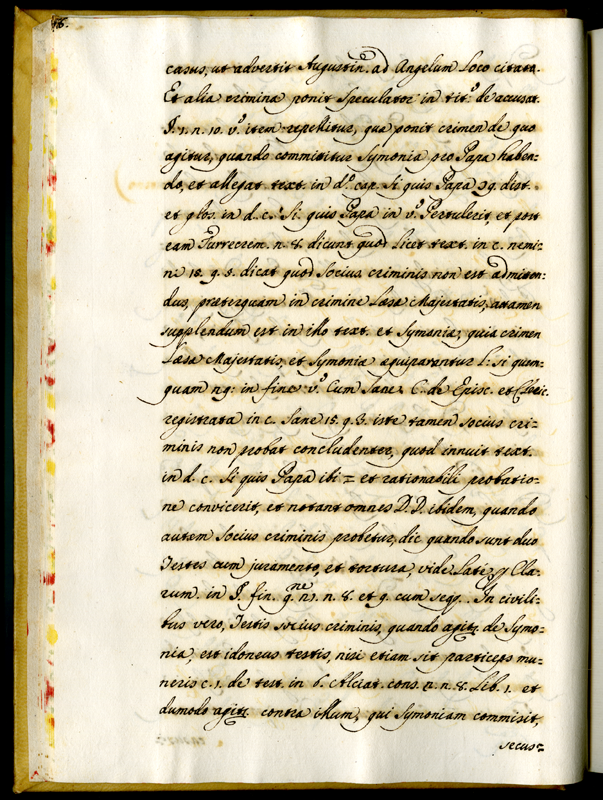 casus, ut advertit Augustin. ad Angelum Loco citato.
Et alia crimina ponit Speculator in tit.º de accusat.
§. 1. n. 10. vº item repellitur, qua ponit crimen de quo
agitur, quando committitur Symonia pro Papa haben-
do, et allegat text. in dº cap. Si quis Papa 79. dist.
et glos. in d. c. Si quis Papa in vº Pertulerit, et post
eam Turrecrem. n. 8. dicunt quod licet text. in c. nemi-
ni 15. q. 3. dicat quod Socius criminis non est admitten-
dus, præterquam in crimine Læsæ Majestatis, attamen
supplendum est in illo text. et Symonia; quia crimen
Læsæ Majestatis, et Symonia æquiparantur L: Si quem-
quam n 9: in fine vº Cum Sane C. de Episc. et Cleric.
registrata in c. Sane 15. q. 3. iste tamen socius cri-
minis non probat concludenter, quod innuit text.
in d. c. Si quis Papa ibi = et rationabili probatio-
ne convicerit, et notant omnes D.D. ibidem, quando
autem Socius criminis probetur, dic quando sunt duo
Testes cum juramento, et tortura, vide Late Cla-
rum in §. fin. qne n. 8. et 9. cum seqq. In civili-
bus vero, Testis socius criminis, quando agitr. de Symo-
nia, est idoneus testis, nisi etiam sit particeps mu-
neris c. 1. de test. in 6. Alciat. cons. 2. n. 8. Lib. 1. et
dumodo agitr. contra illum, qui Symoniam commisit,
secus